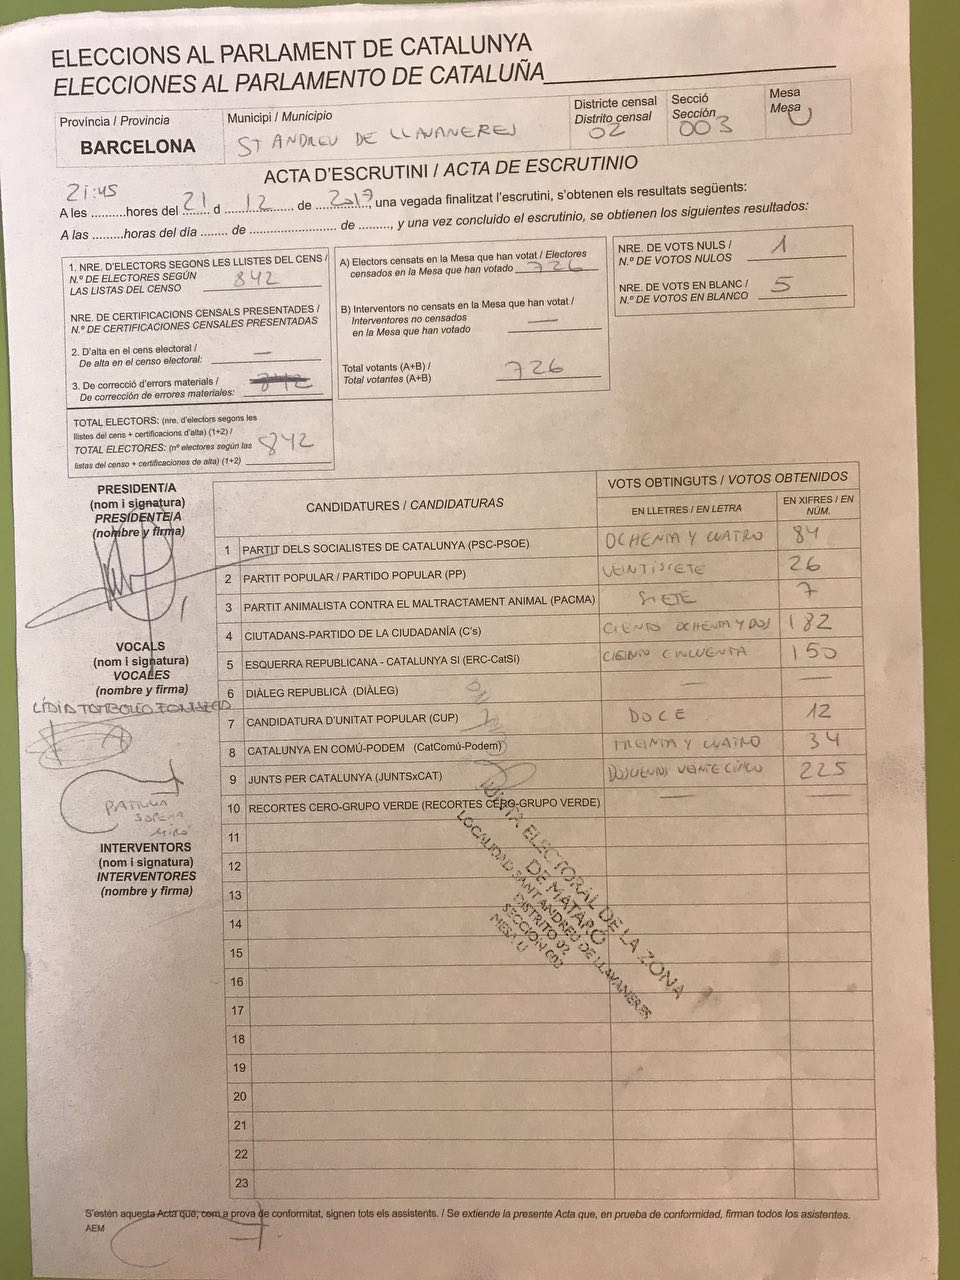 ELECCIONS AL PARLAMENT DE CATALUNYA
ELECCIONES AL PARLAMENTO DE CATALUÑA
Província / Provincia
BARCELONA
Municipi / Municipio
ST ANDREU DE LLAVANERES
Districte censal
Distrito censal
02
Secció
Sección
003
Mesa
Mesa
U
ACTA D'ESCRUTINI / ACTA DE ESCRUTINIO
21:45
A les ..........hores del 21 d 12 de 2017, una vegada finalitzat l'escrutini, s'obtenen els resultats següents:
A las .........horas del día ........ de .......................... de ........., y una vez concluido el escrutinio, se obtienen los siguientes resultados:
1. NRE. D'ELECTORS SEGONS LES LLISTES DEL CENS /
N.º DE ELECTORES SEGÚN
LAS LISTAS DEL CENSO
842
NRE. DE CERTIFICACIONS CENSALS PRESENTADES /
N.º DE CERTIFICACIONES CENSALES PRESENTADAS
2. D'alta en el cens electoral /
De alta en el censo electoral: —
3. De correcció d'errors materials /
De corrección de errores materiales: 842
TOTAL ELECTORS: (nre. d'electors segons les
llistes del cens + certificacions d'alta) (1+2) /
TOTAL ELECTORES: (nº electores según las
listas del censo + certificaciones de alta) (1+2)
842
A) Electors censats en la Mesa que han votat / Electores
censados en la Mesa que han votado 726
B) Interventors no censats en la Mesa que han votat /
Interventores no censados
en la Mesa que han votado —
Total votants (A+B) /
Total votantes (A+B) 726
NRE. DE VOTS NULS /
N.º DE VOTOS NULOS 1
NRE. DE VOTS EN BLANC /
N.º DE VOTOS EN BLANCO 5
PRESIDENT/A
(nom i signatura)
PRESIDENTE/A
(nombre y firma)
VOCALS
(nom i signatura)
VOCALES
(nombre y firma)
PATRICIA
SORENA
MIRÓ
INTERVENTORS
(nom i signatura)
INTERVENTORES
(nombre y firma)
CANDIDATURES / CANDIDATURAS
VOTS OBTINGUTS / VOTOS OBTENIDOS
EN LLETRES / EN LETRA
EN XIFRES / EN NÚM.
1 PARTIT DELS SOCIALISTES DE CATALUNYA (PSC-PSOE) OCHENTA Y CUATRO 84
2 PARTIT POPULAR / PARTIDO POPULAR (PP) VEINTISIETE 26
3 PARTIT ANIMALISTA CONTRA EL MALTRACTAMENT ANIMAL (PACMA) SIETE 7
4 CIUTADANS-PARTIDO DE LA CIUDADANÍA (C's) CIENTO OCHENTA Y DOS 182
5 ESQUERRA REPUBLICANA - CATALUNYA SI (ERC-CatSí) CIENTO CINCUENTA 150
6 DIÀLEG REPUBLICÀ (DIÀLEG) — —
7 CANDIDATURA D'UNITAT POPULAR (CUP) DOCE 12
8 CATALUNYA EN COMÚ-PODEM (CatComú-Podem) TREINTA Y CUATRO 34
9 JUNTS PER CATALUNYA (JUNTSxCAT) 225
10 RECORTES CERO-GRUPO VERDE (RECORTES CERO-GRUPO VERDE) — —
11
12
13
14
15
16
17
18
19
20
21
22
23
JUNTA ELECTORAL DE LA ZONA
DE MATARÓ
LOCALIDAD SANT ANDREU DE LLAVANERES
DISTRITO 02
SECCION 003
MESA U
S'estén aquesta Acta que, com a prova de conformitat, signen tots els assistents. / Se extiende la presente Acta que, en prueba de conformidad, firman todos los asistentes.
AEM